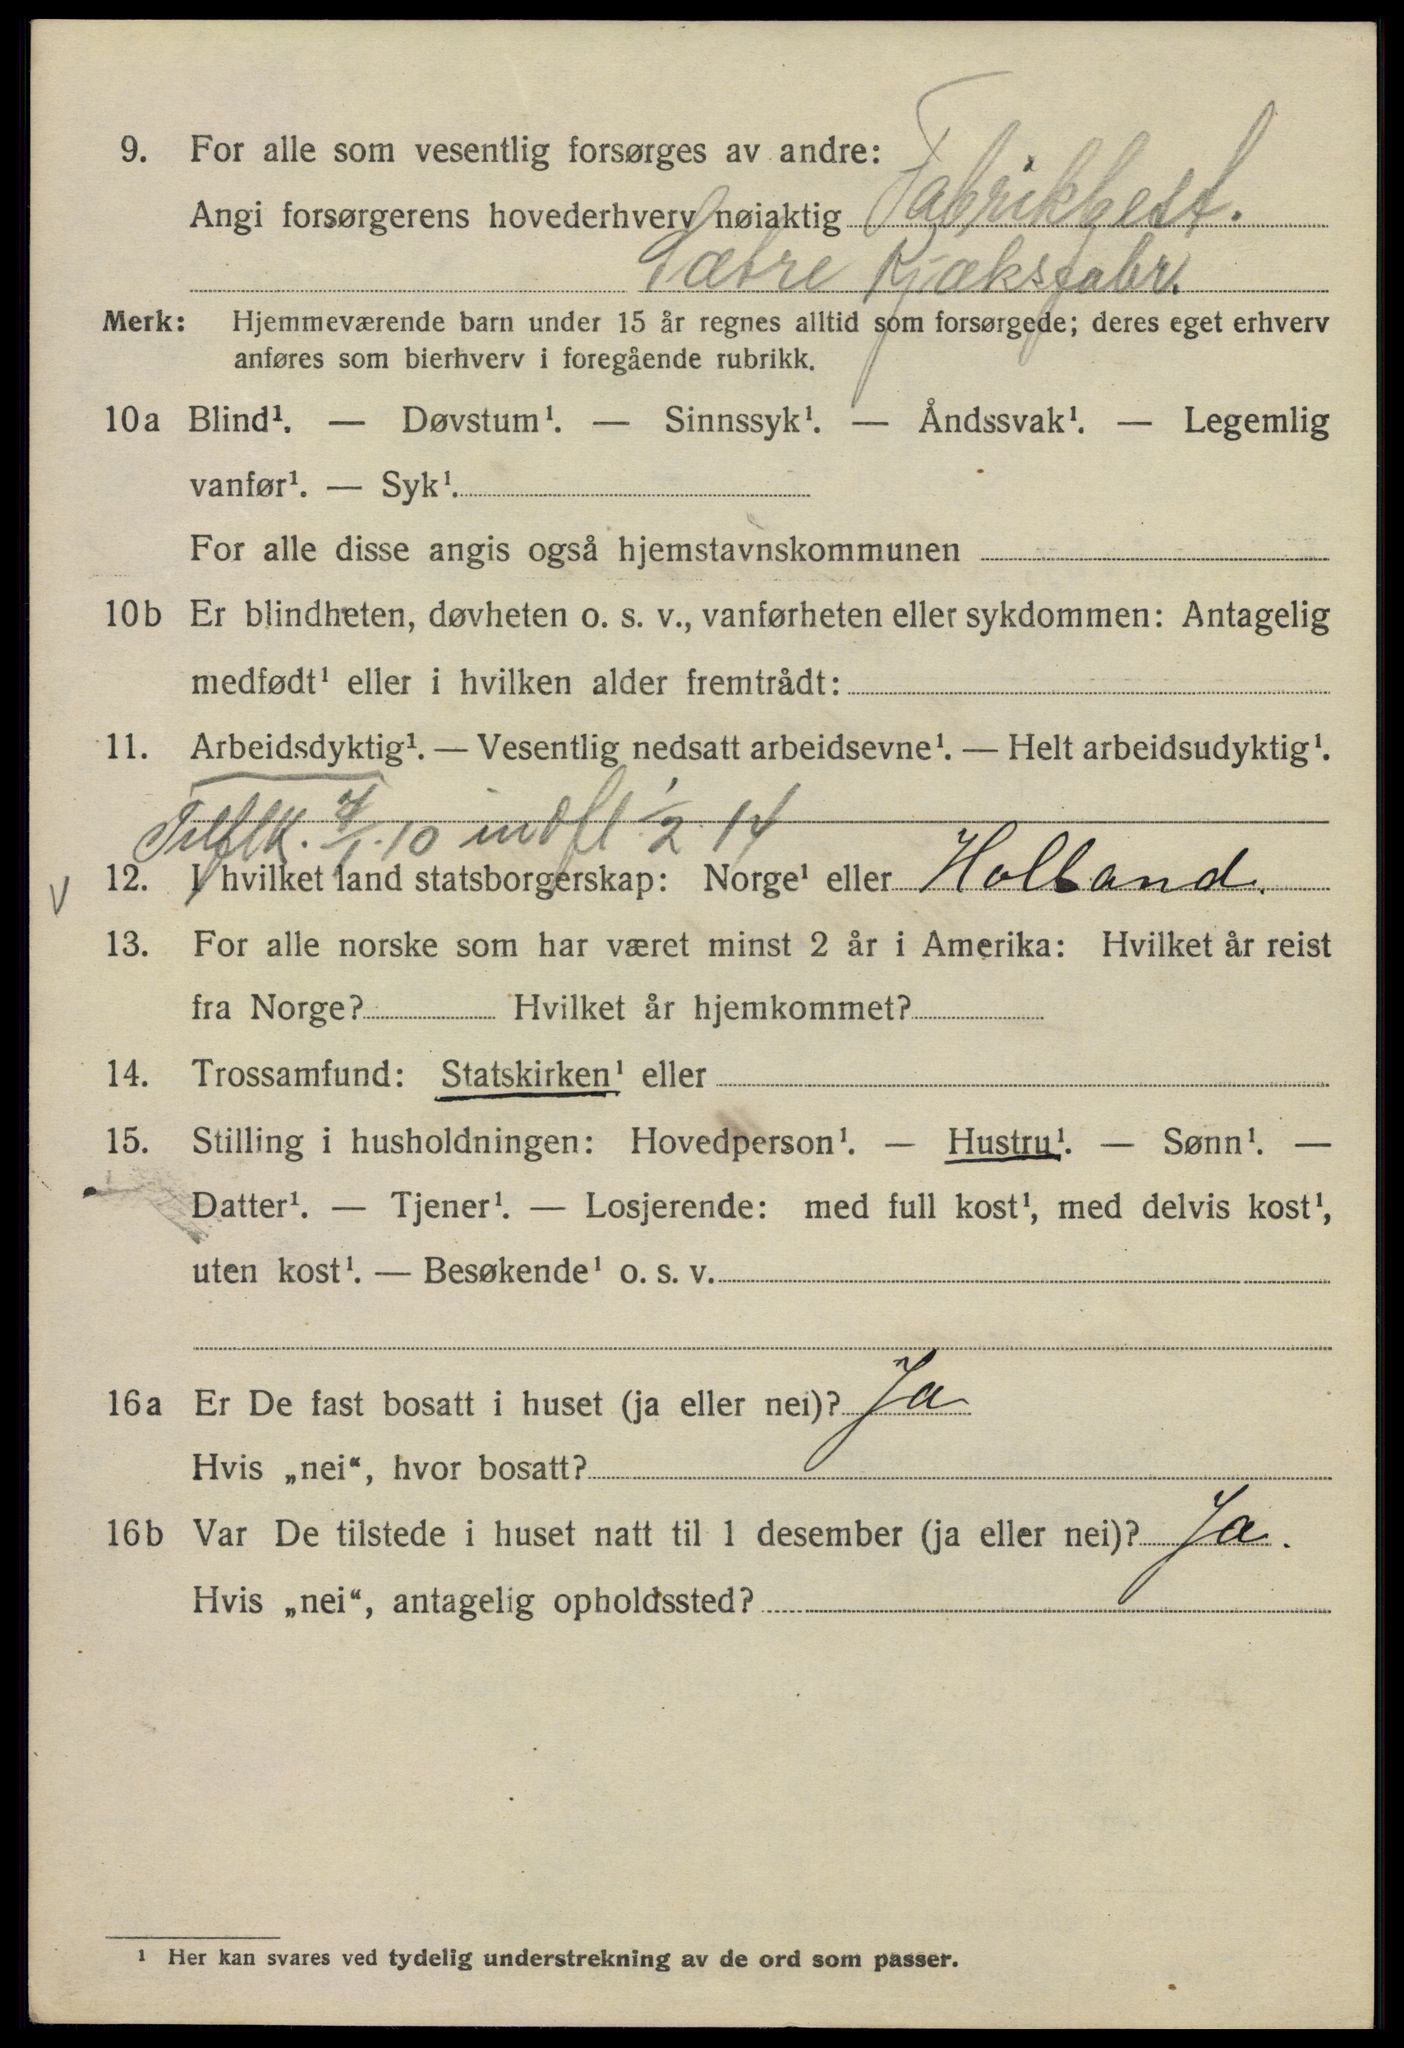 9. For alle som vesentlig forsørges av andre:
Angi forsørgerens hovederhverv nøiaktig Fabrikbest.
Sætre Kjæksfabr.
Merk: Hjemmeværende barn under 15 år regnes alltid som forsørgede; deres eget erhverv
anføres som bierhverv i foregående rubrikk.
10a Blind¹. — Døvstum¹. — Sinnssyk¹. — Åndssvak¹. — Legemlig
vanfør¹. — Syk¹.
For alle disse angis også hjemstavnskommunen
10b Er blindheten, døvheten o. s. v., vanførheten eller sykdommen: Antagelig
medfødt¹ eller i hvilken alder fremtrådt:
11. Arbeidsdyktig¹. — Vesentlig nedsatt arbeidsevne¹. — Helt arbeidsudyktig¹.
10 indfl 1/2 14
V 12. I hvilket land statsborgerskap: Norge¹ eller Holland.
13. For alle norske som har været minst 2 år i Amerika: Hvilket år reist
fra Norge? Hvilket år hjemkommet?
14. Trossamfund: Statskirken¹ eller
15. Stilling i husholdningen: Hovedperson¹. — Hustru¹. — Sønn¹. —
Datter¹. — Tjener¹. — Losjerende: med full kost¹, med delvis kost¹,
uten kost¹. — Besøkende¹ o. s. v.
16a Er De fast bosatt i huset (ja eller nei)? Ja
Hvis „nei“, hvor bosatt?
16b Var De tilstede i huset natt til 1 desember (ja eller nei)? Ja.
Hvis „nei“, antagelig opholdssted?
¹ Her kan svares ved tydelig understrekning av de ord som passer.